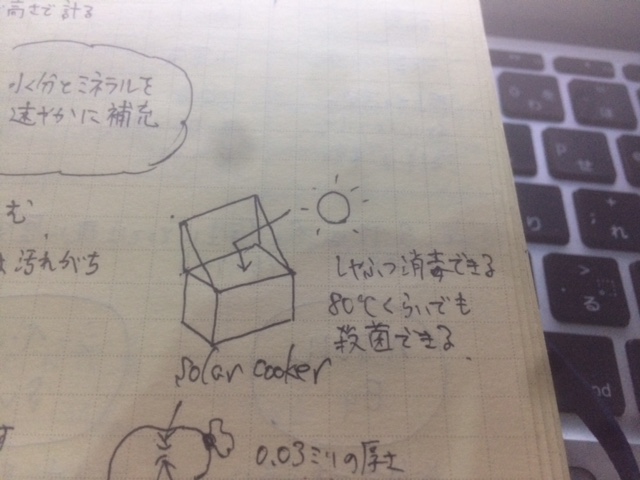 高さで計る
水分とミネラルを
速やかに補充
む
汚れがち
しゃふつ消毒できる
80℃くらいでも
殺菌できる.
solar cooker
0.03ミリの厚さ
わ
ほ
P
せ
り
+
れ
>
.
る
nd